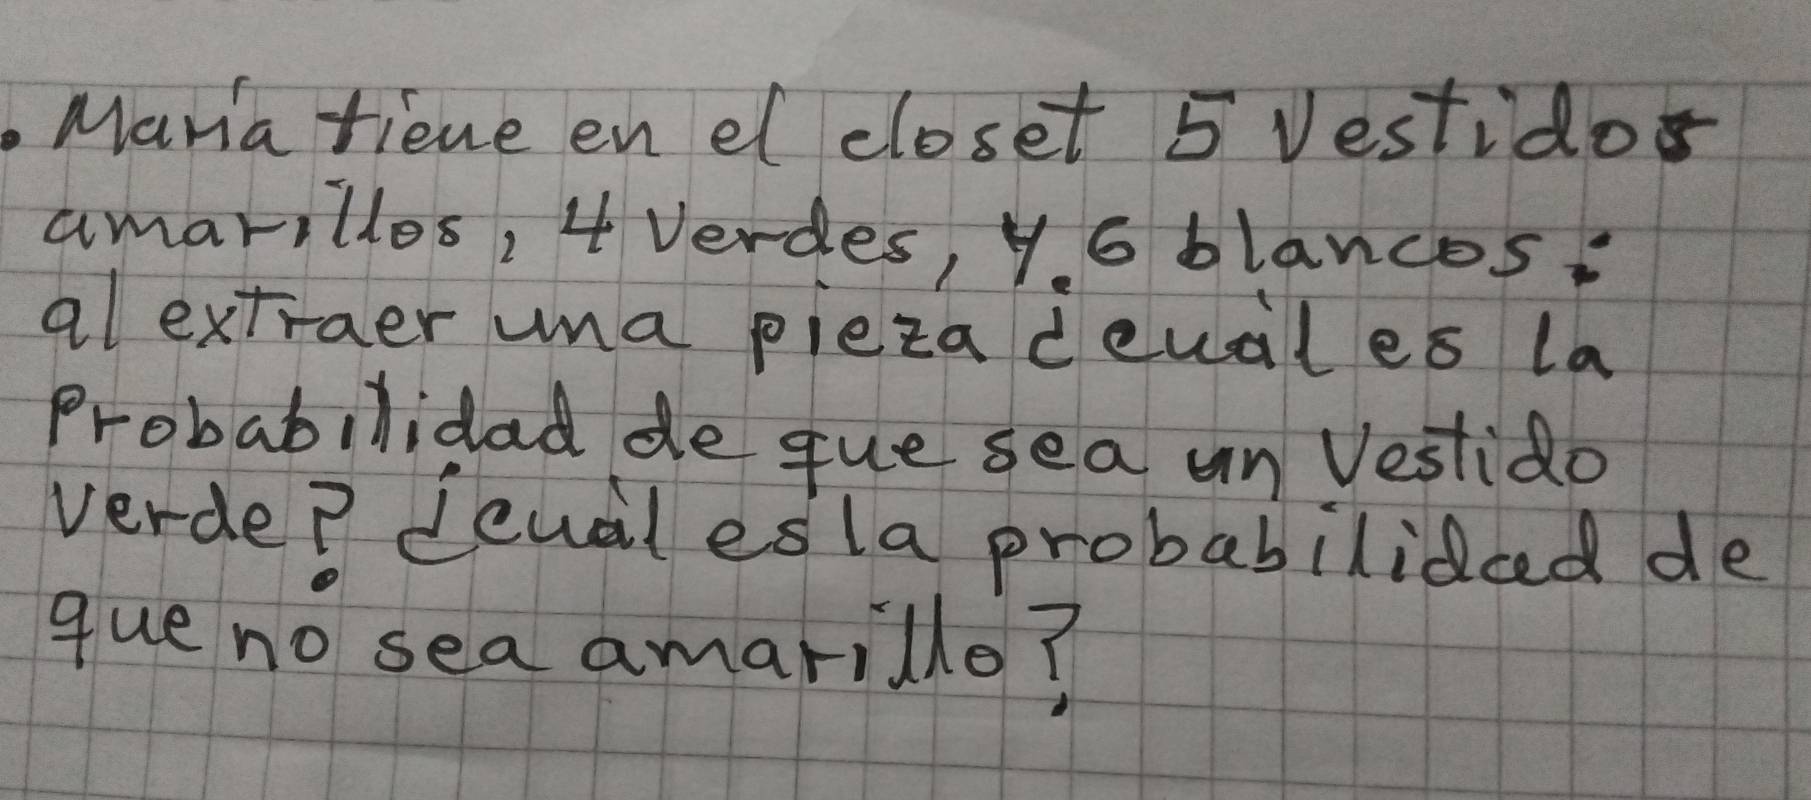 . María tiene en el closet 5 Vestidos
amarillos, 4 Verdes, y. 6 blancos:
al extraer una pieza ¿cuál es la
Probabilidad de que sea un Vestido
Verde? ¿cuál es la probabilidad de
que no sea amarillo?